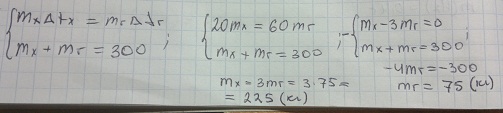 { mₓΔtₓ = mᵣΔtᵣ
{ mₓ + mᵣ = 300 ;
{ 20mₓ = 60mᵣ
{ mₓ + mᵣ = 300 ;
-{ mₓ - 3mᵣ = 0
{ mₓ + mᵣ = 300 ;
-4mᵣ = -300
mᵣ = 75 (кг)
mₓ = 3mᵣ = 3·75 =
= 225 (кг)